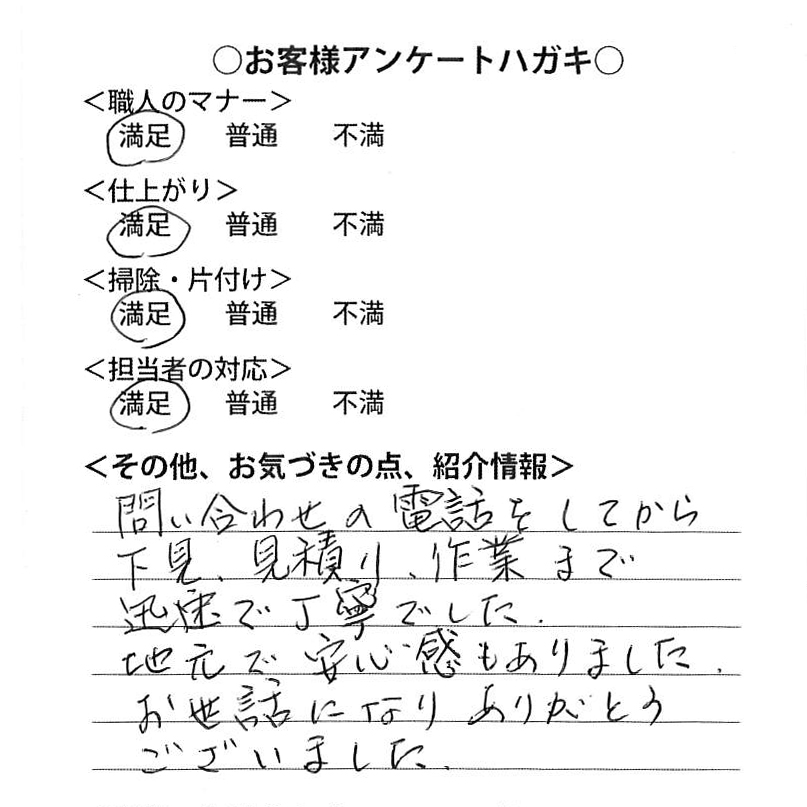 ○お客様アンケートハガキ○
＜職人のマナー＞
満足 普通 不満
＜仕上がり＞
満足 普通 不満
＜掃除・片付け＞
満足 普通 不満
＜担当者の対応＞
満足 普通 不満
＜その他、お気づきの点、紹介情報＞
問い合わせの電話をしてから
下見、見積り、作業まで
迅速で丁寧でした.
地元で安心感もありました.
お世話になりありがとう
ございました.